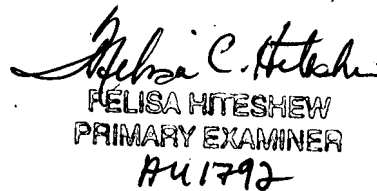 Felisa C. Hiteshew
FÉLISA HITESHEW
PRIMARY EXAMINER
AU 1792